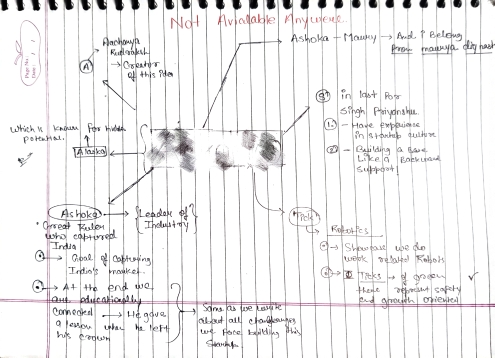 Not Avialable Anywere..
Aacharya
Rudraksh
→ Creator
of this idea
A
Ashoka - Maury → And I Belong
from maurya dignast
in last for
Singh Priyanshu
1. - Have experience
in startup culture
2 - Building a Base
Like a Backward
Support!
Which is known for hidden
potential.
Alaska
Ashoka → Leader of
Industry
• Great Ruler
who captured
India
→ Goal of Capturing
India's market.
→ At the end we
are educationally
connected → He gave
a lesson when he left
his crown
Same as we write
about all challenges
we face building this
Startup
"Tick"
Robotics
→ Showcase we do
work related Robots
Ticks → of green
theme represent safety
and growth oriented
Page No.
Date